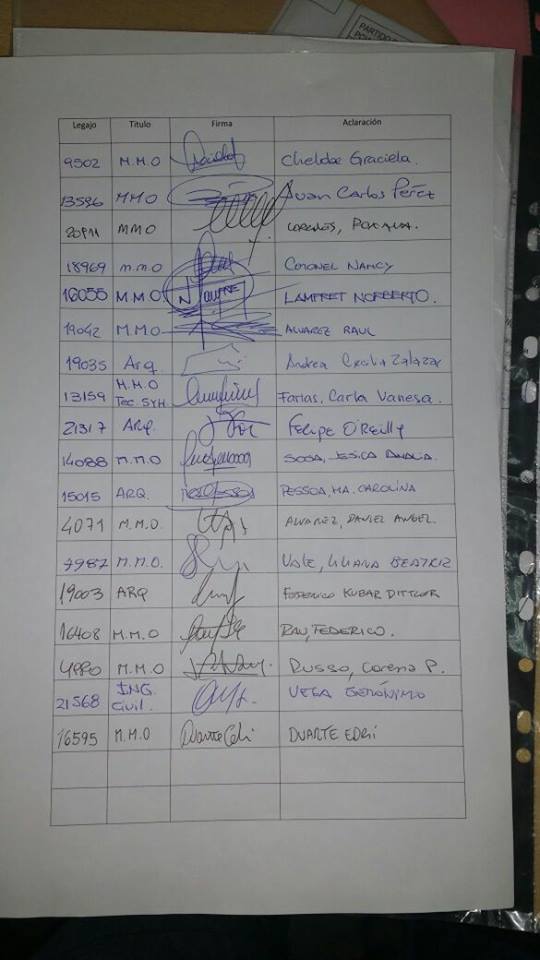 PARTIDO
Legajo Titulo Firma Aclaración
9502 M.M.O Cheldoe Graciela.
13596 MMO Juan Carlos Pérez
MMO
18969 M.M.O CORONEL NANCY
16055 M M O LAMPRET NORBERTO.
19042 M.M.O ALVAREZ RAUL
19035 Arq. Andrea Cecilia Zalazar
13159 M.M.O Tec. SYH. Farias, Carla Vanesa.
21317 ARQ. Felipe O'Reilly
14088 M.M.O SOSA, JESICA ANALIA.
15015 ARQ. PESSOA, MA. CAROLINA
4071 M.M.O. ALVAREZ, DANIEL ANGEL.
7987 M.M.O. LILIANA BEATRIZ
19003 ARQ FEDERICO KUBAR DITTLER
16408 M.M.O RAU, FEDERICO.
4980 M.M.O Russo, Lorena P.
21568 ING. Civil. VEGA GERÓNIMO
16595 M.M.O DUARTE